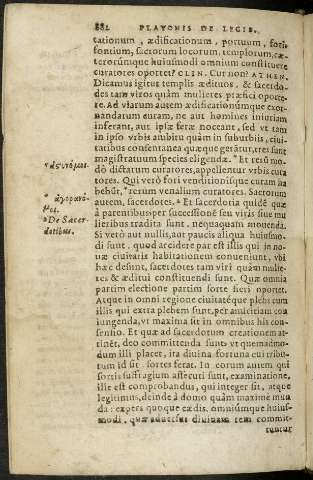 882 PLATONIS DE LEGIB.
tationum, ædificationum, portuum, fori,
fontium, sacrorum locorum, templorum, cæ-
terorúmque huiusmodi omnium constituere
curatores oportet? CLIN. Cur non? ATHEN.
Dicamus igitur templis ædituos, & sacerdo-
des tam viros quàm mulieres præfici oporte-
re. Ad viarum autem ædificationúmque exor-
nandarum curam, ne aut homines iniuriam
inferant, aut ipsæ feræ noceant, sed vt tam
in ipso vrbis ambitu quàm in suburbiis, ciui-
tatibus consentanea quæque gerãtur, tres sunt
magistratuum species eligendæ. Et
dò dictarum curatores, appellentur vrbis cura
tores. Qui verò fori venustatisque curam ha
ἀστυνόμοι.
bebũt, rerum venalium curatores. Sacrorum
ἀγορανό-
μοι.
autem, sacerdotes. Et sacerdotia quidẽ quæ
De Sacer
dotibus.
à parentibus per successionẽ seu viris siue mu
lieribus tradita sunt, nequaquam mouenda.
Si verò aut nullis, aut paucis aliqua huiusmo-
di sunt, quod accidere par est illis qui in no-
uæ ciuitatis habitationem conueniunt, vbi
hæc desunt, sacerdotes tam viri quàm mulie-
res & æditui constituendi sunt. Quæ omnia
partim electione partim sorte fieri oportet.
Atque in omni regione ciuitatéque plebs cum
illis qui extra plebem sunt, per amicitiam con
iungenda, vt maxima sit in omnibus his con-
sensio. Et quæ ad sacerdotum creationem at-
tinẽt, deo committenda sunt: vt quemadmo-
dum illi placet, ita diuina fortuna eui tribu-
tum id sit sortes ferat. In eorum autem qui
sortis suffragium assecuti sunt, examinatione,
ille est comprobandus, qui integer sit, atque
legitimus, deinde à domo quàm maximè mun
da: expers quoque cædis, omniúmque huius-
modi, quæ aduersus diuinam rem commit-
tuntur